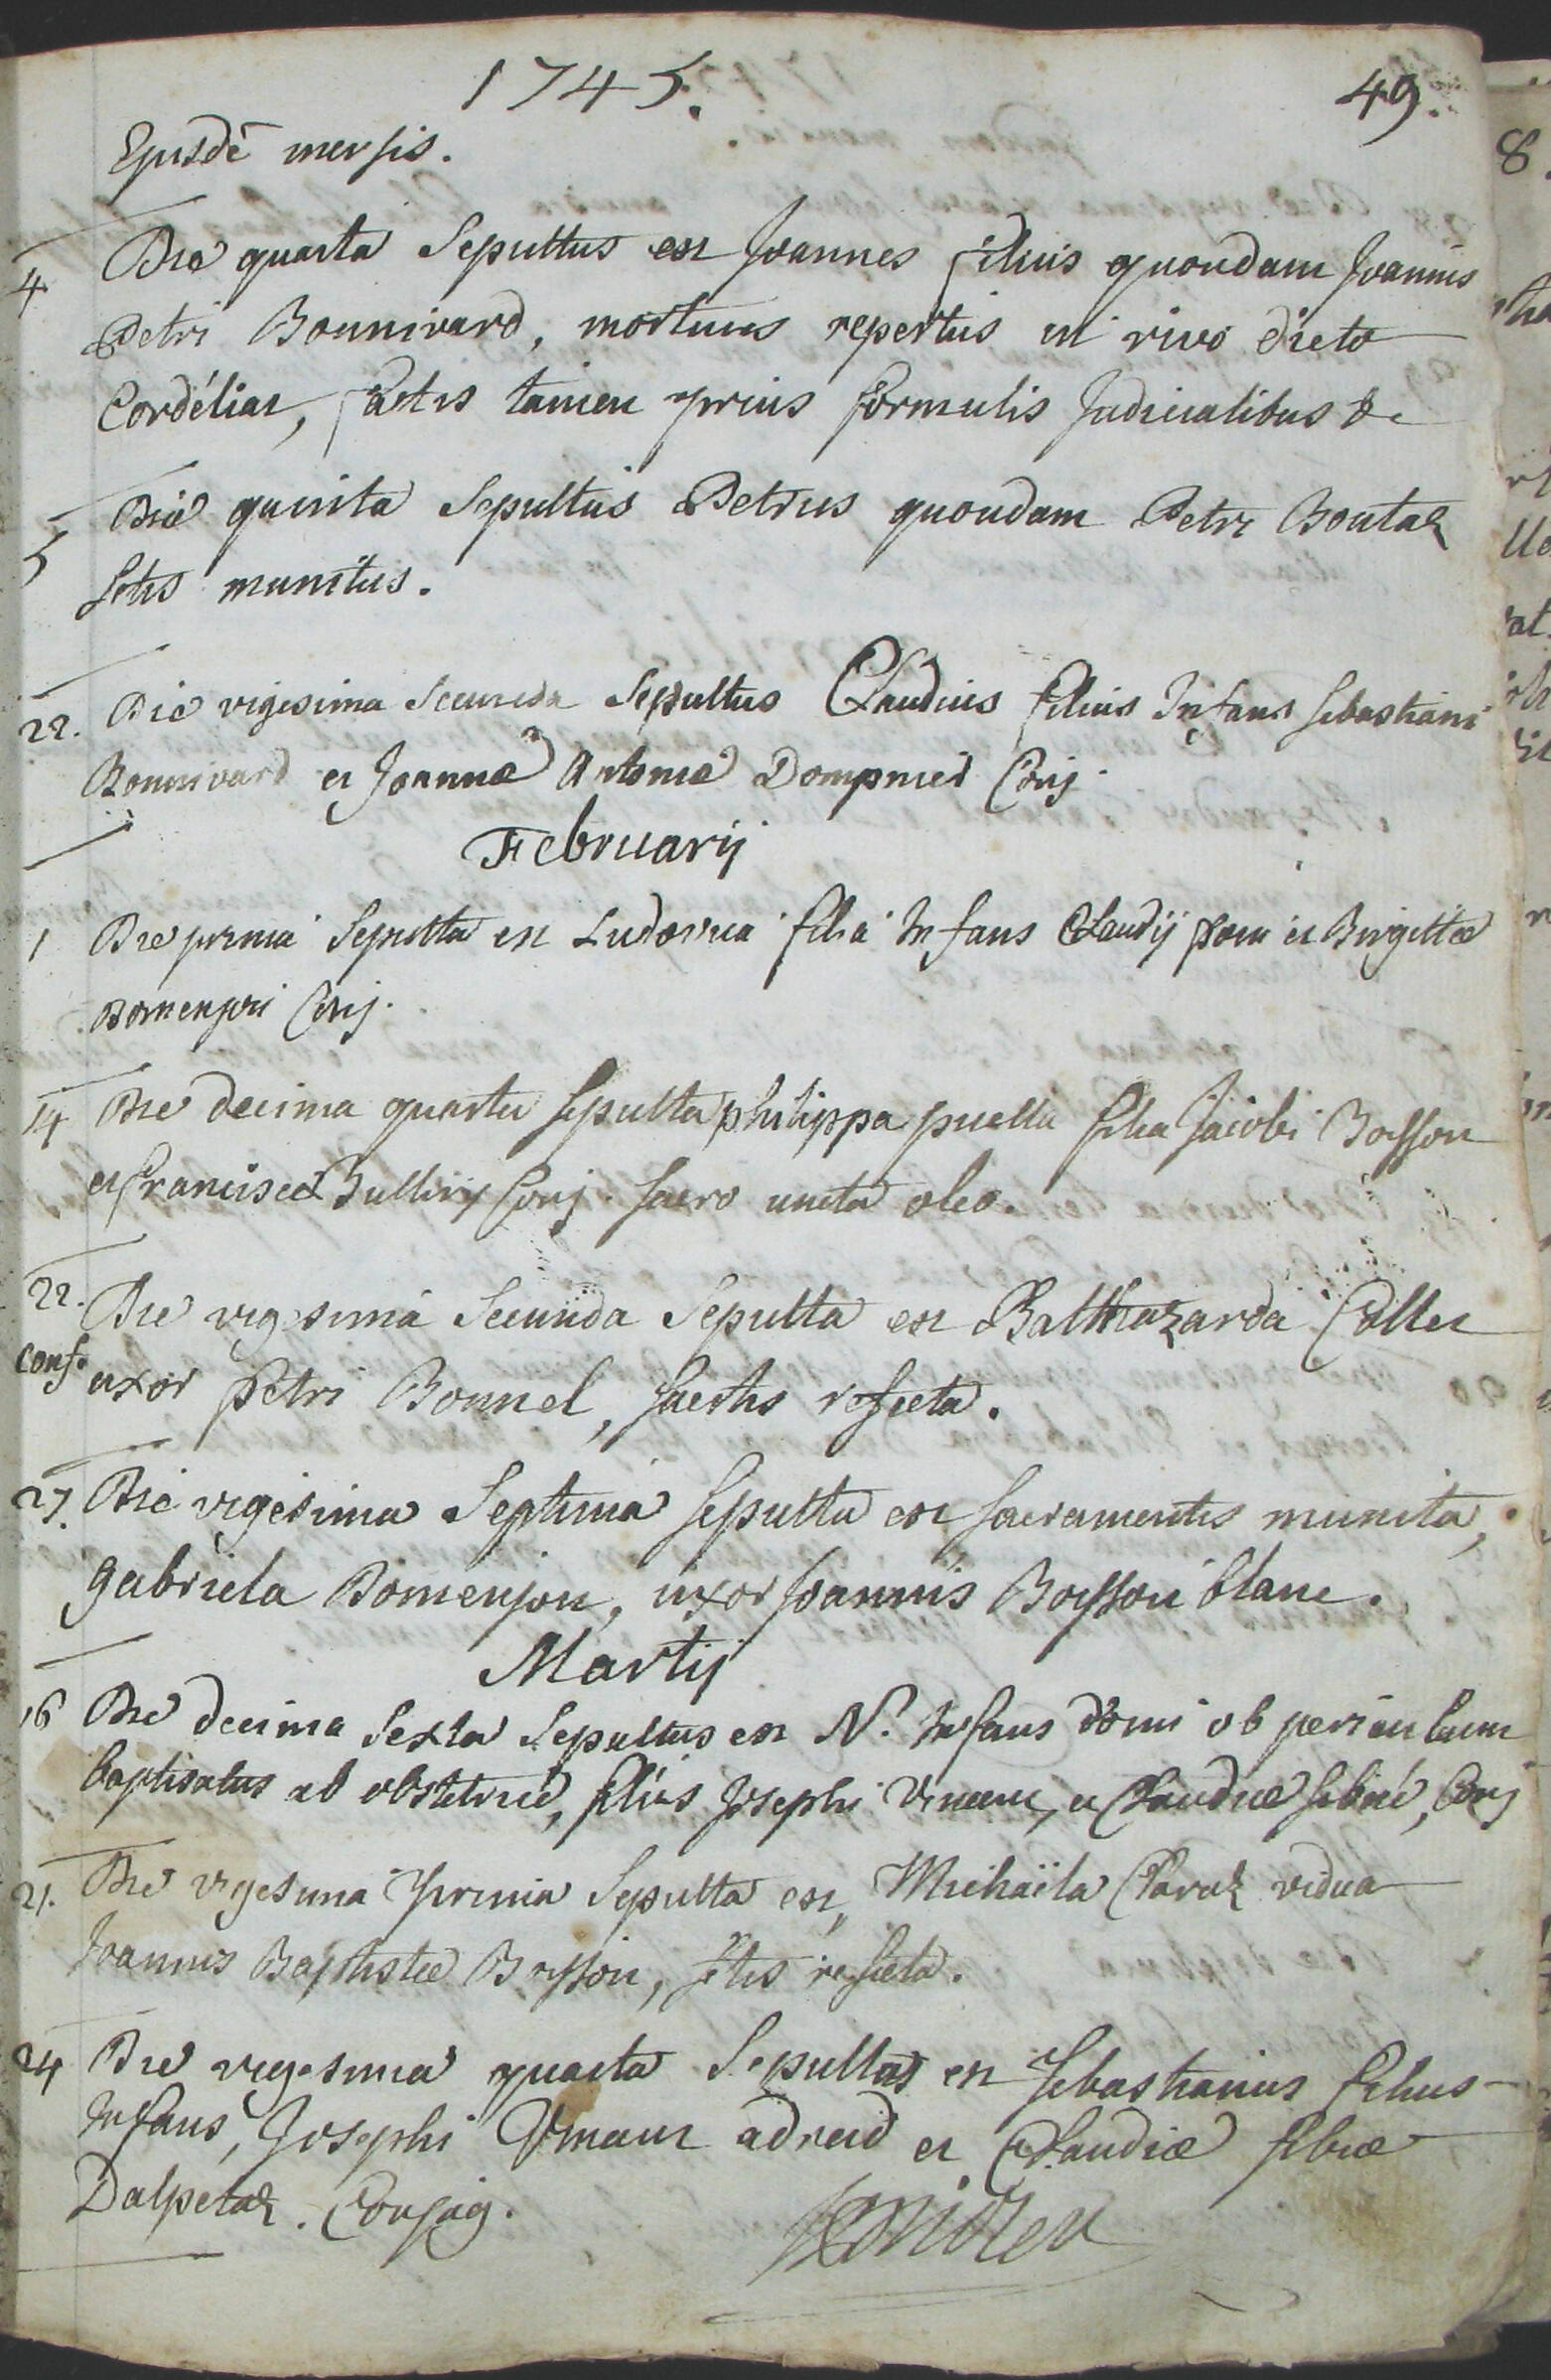 1745.
49.
Ejusdē mensis.
4 Die quarta Sepultus est Joannes filius quondam Joannis
Petri Bonnivard, mortuus repertus in rivo dicto
Cordélias, factis tamen prius formulis Judicialibus &c
5 Die quinta Sepultus Petrus quondam Petri Boutaz
Sctis munitus.
22. Die vigesima Secunda Sepultus Claudius filius Infans Sebastiani
Bonnivard et Joannæ Antoniæ Dompnier Conj.
Februarij
1 Die prima Sepulta est Ludovica filia Infans Claudij et Birgittæ
Bomenjon Conj.
14 Die decima quarta Sepulta philippa puella filia Jacobi Boisson
et franciscæ Bulliery Conj. Sacro uncta oleo.
22. Die vigesima Secunda Sepulta est Balthazarda Collet
conf. uxor petri Bonnel, Sacrtis refecta.
27. Die vigesima Septima Sepulta est Sacramentis munita,
gabriela Bomenjon, uxor Joannis Boisson blanc.
Martij
16 Die decima Sexta Sepultus est N. Infans domi ob periculum
baptisatus ab obstetrice, filius Josephi Vincent, et Claudiæ Sibuë, Conj
21. Die vigesima prima Sepulta est, Michaëla Claraz vidua
Joannis Baptistæ Boisson, Sctis refecta.
24 Die vigesima quarta Sepultus est Sebastianus filius
Infans, Josephi Vincent adreid et Claudiæ Sibuë
Dalpetaz. Conjug.
8.